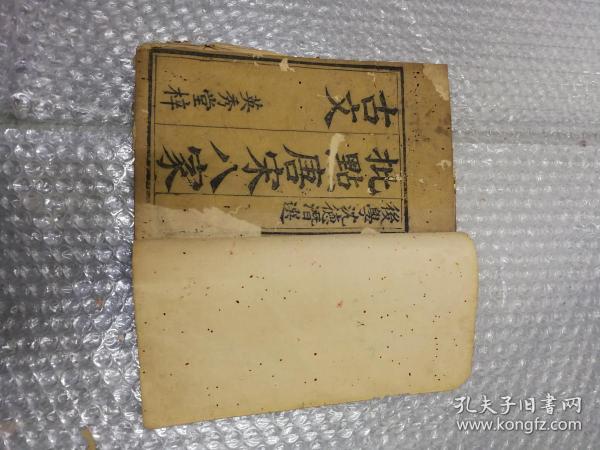 後學沈德潛選
批點唐宋八家
古文
英秀堂梓
孔夫子旧書网
www.kongfz.com